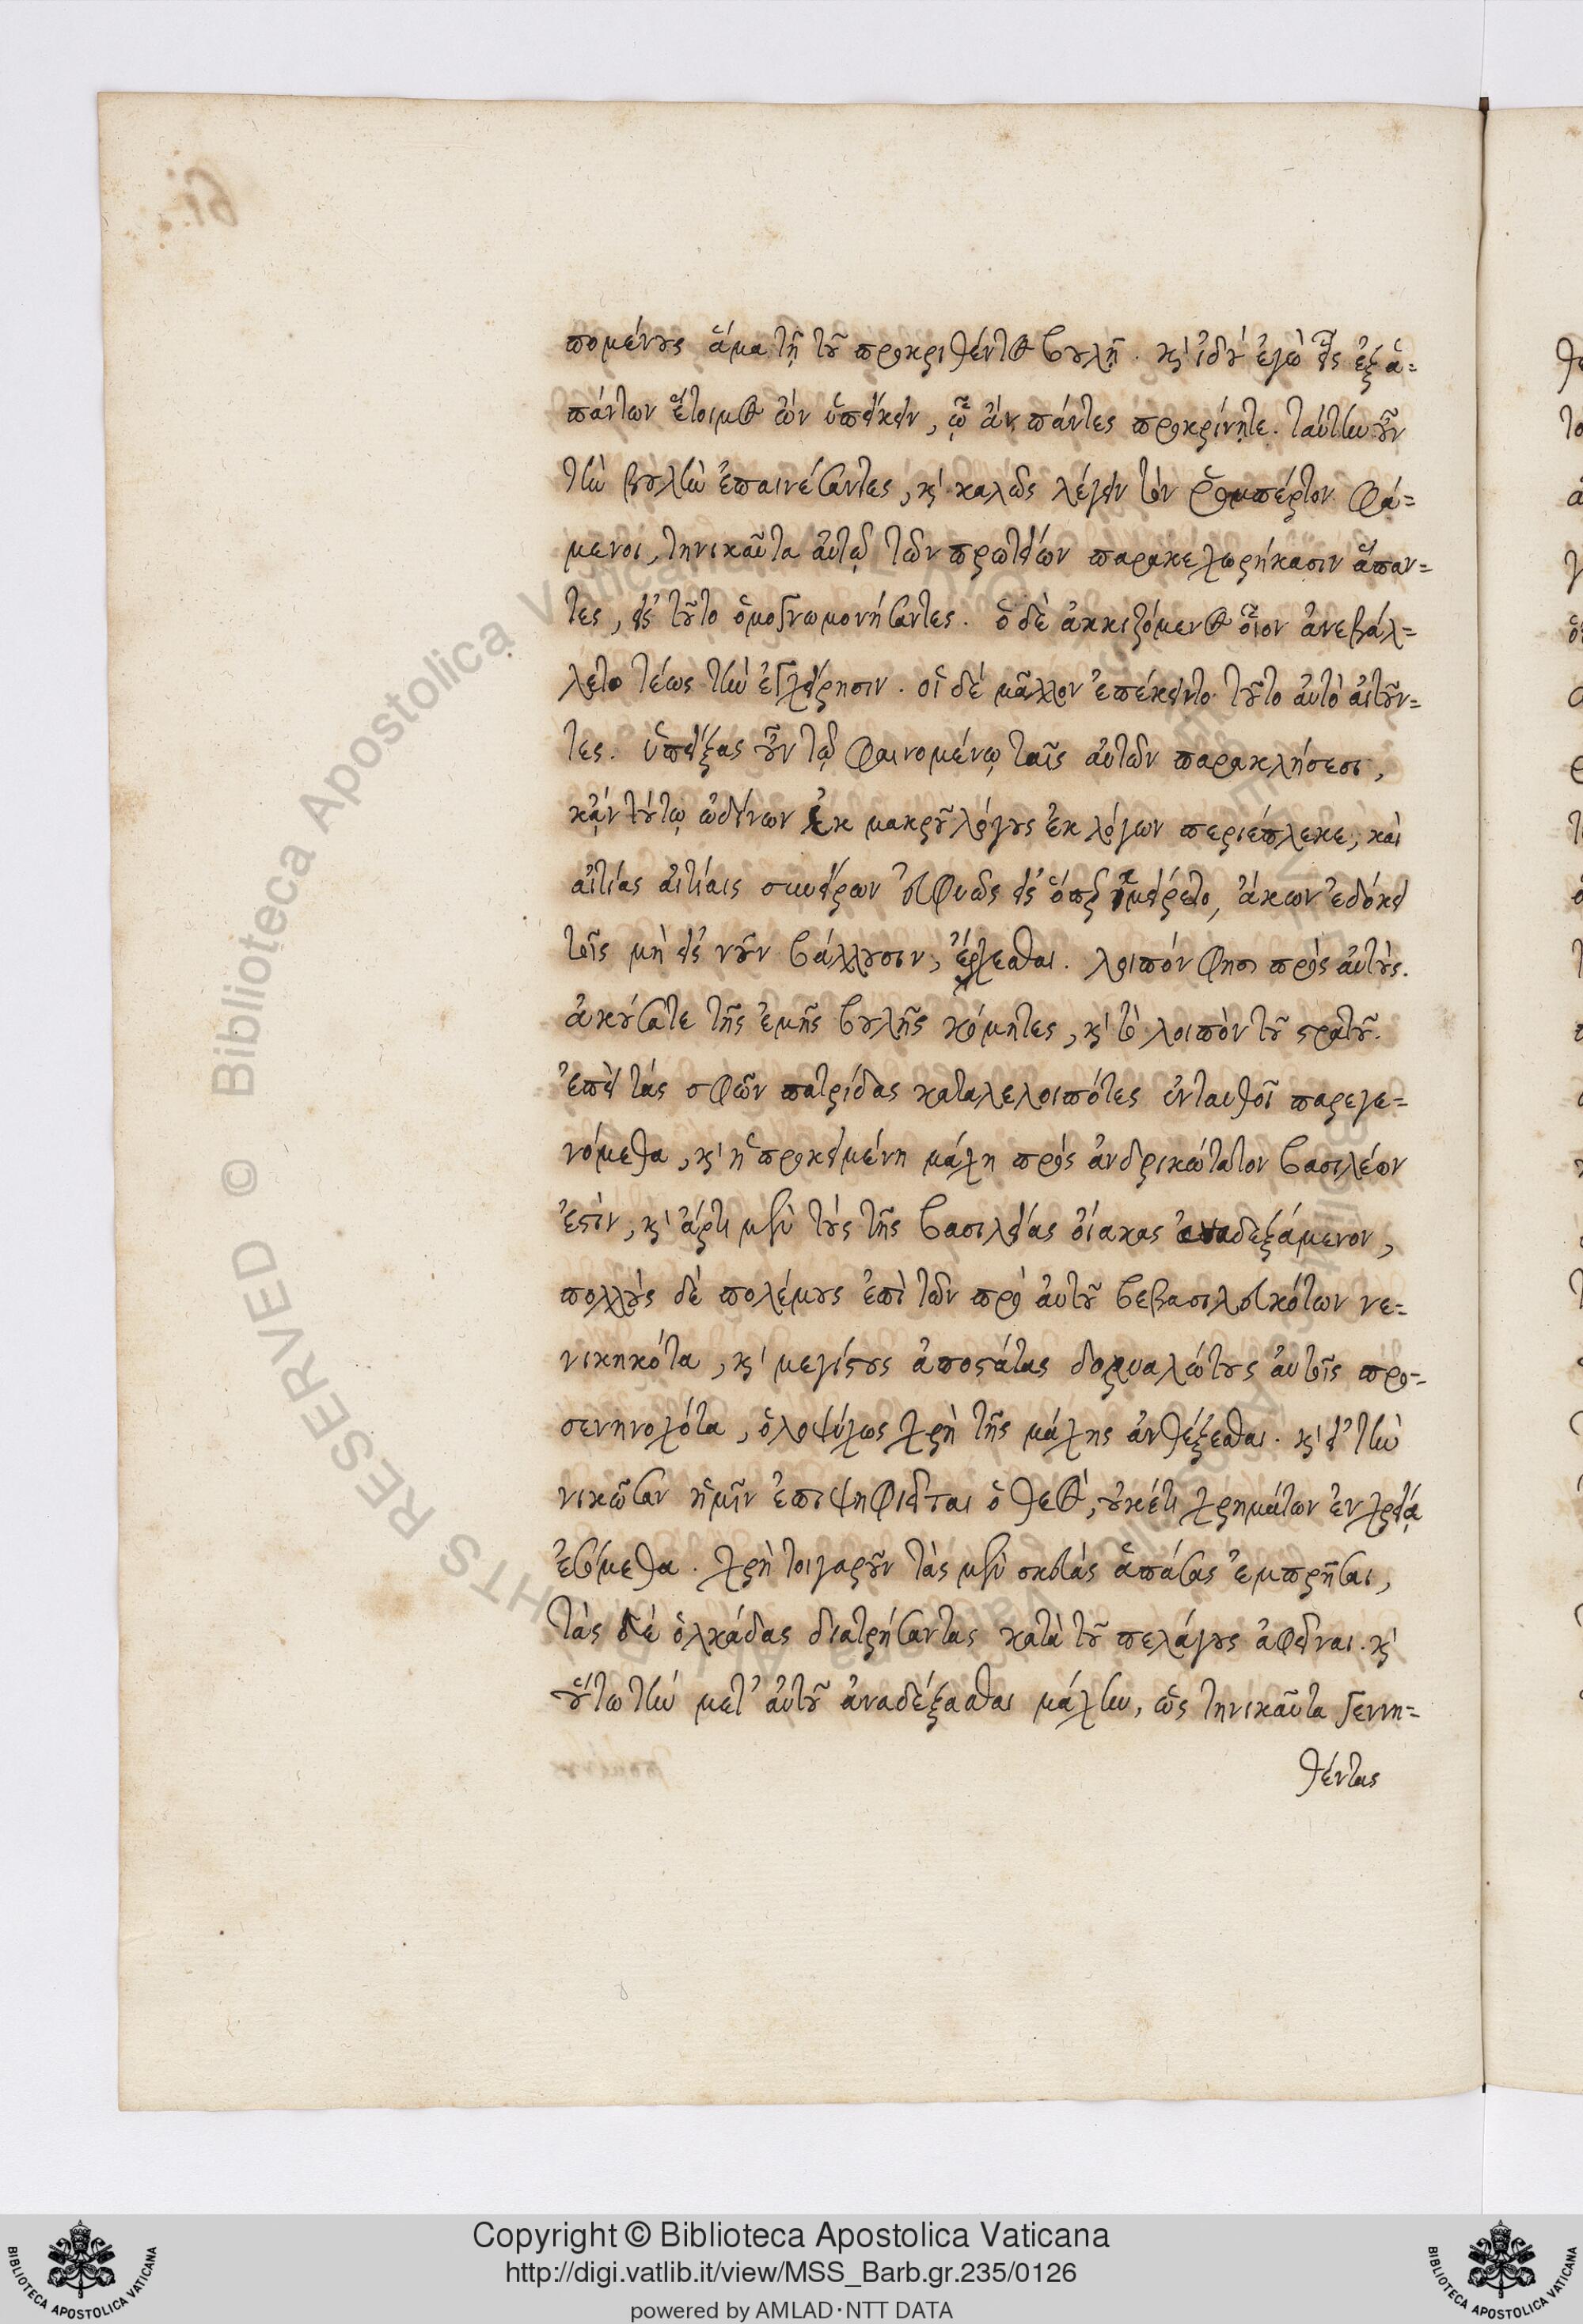 πομένους ἅμα τῇ τοῦ προκριθέντος βουλῇ. καὶ ἰδοὺ ἐγὼ εἷς ἐξ ἁ-
πάντων ἕτοιμος ὢν ὑπείκειν, ᾧ ἂν πάντες προκρίνητε. ταύτην οὖν
τὴν βουλὴν ἐπαινέσαντες, καὶ καλῶς λέγειν τὸν Ῥομπέρτον φά-
μενοι, τηνικαῦτα αὐτῷ τῶν πρωτείων παρακεχωρήκασιν ἅπαν-
τες, εἰς τοῦτο ὁμογνωμονήσαντες. ὁ δὲ ἀκκιζόμενος οἷον ἀνεβάλ-
λετο τέως τὴν ἐγχείρησιν. οἱ δὲ μᾶλλον ἐπέκειντο τοῦτο αὐτὸ αἰτοῦν-
τες. ὑπείξας οὖν τῷ φαινομένῳ ταῖς αὐτῶν παρακλήσεσι,
κἂν τούτῳ ὠδίνων ἐκ μακροῦ λόγους ἐκ λόγων περιέπλεκε, καὶ
αἰτίας αἰτίαις συνείρων εὐφυῶς εἰς ὅπερ ἱμείρετο, ἄκων ἐδόκει
τοῖς μὴ εἰς νοῦν βάλλουσιν, ἔρχεσθαι. λοιπόν φησι πρὸς αὐτούς.
ἀκούσατε τῆς ἐμῆς βουλῆς κόμητες, καὶ τὸ λοιπὸν τοῦ στρατοῦ.
ἐπεὶ τὰς σφῶν πατρίδας καταλελοιπότες ἐνταυθοῖ παρεγε-
νόμεθα, καὶ ἡ προκειμένη μάχη πρὸς ἀνδρικώτατον βασιλέων
ἐστὶν, καὶ ἄρτι μὲν τοὺς τῆς βασιλείας οἴακας ἀναδεξάμενον,
πολλοὺς δὲ πολέμους ἐπὶ τῶν πρὸ αὐτοῦ βεβασιλευκότων νε-
νικηκότα, καὶ μεγίστους ἀποστάτας δορυαλώτους αὐτοῖς προ-
σενηνοχότα, ὁλοψύχως χρὴ τῆς μάχης ἀνθέξεσθαι. καὶ εἰ τὴν
νικῶσαν ἡμῖν ἐπιψηφιεῖται ὁ θεός, οὐκέτι χρημάτων ἐν χρείᾳ
ἐσόμεθα. χρὴ τοιγαροῦν τὰς μὲν σκευὰς ἁπάσας ἐμπρῆσαι,
τὰς δὲ ὁλκάδας διατρήσαντας κατὰ τοῦ πελάγους ἀφεῖναι. καὶ
οὕτω τὴν μετ' αὐτοῦ ἀναδέξασθαι μάχην, ὡς τηνικαῦτα γεννη-
θέντας
Copyright © Biblioteca Apostolica Vaticana
http://digi.vatlib.it/view/MSS_Barb.gr.235/0126
powered by AMLAD·NTT DATA